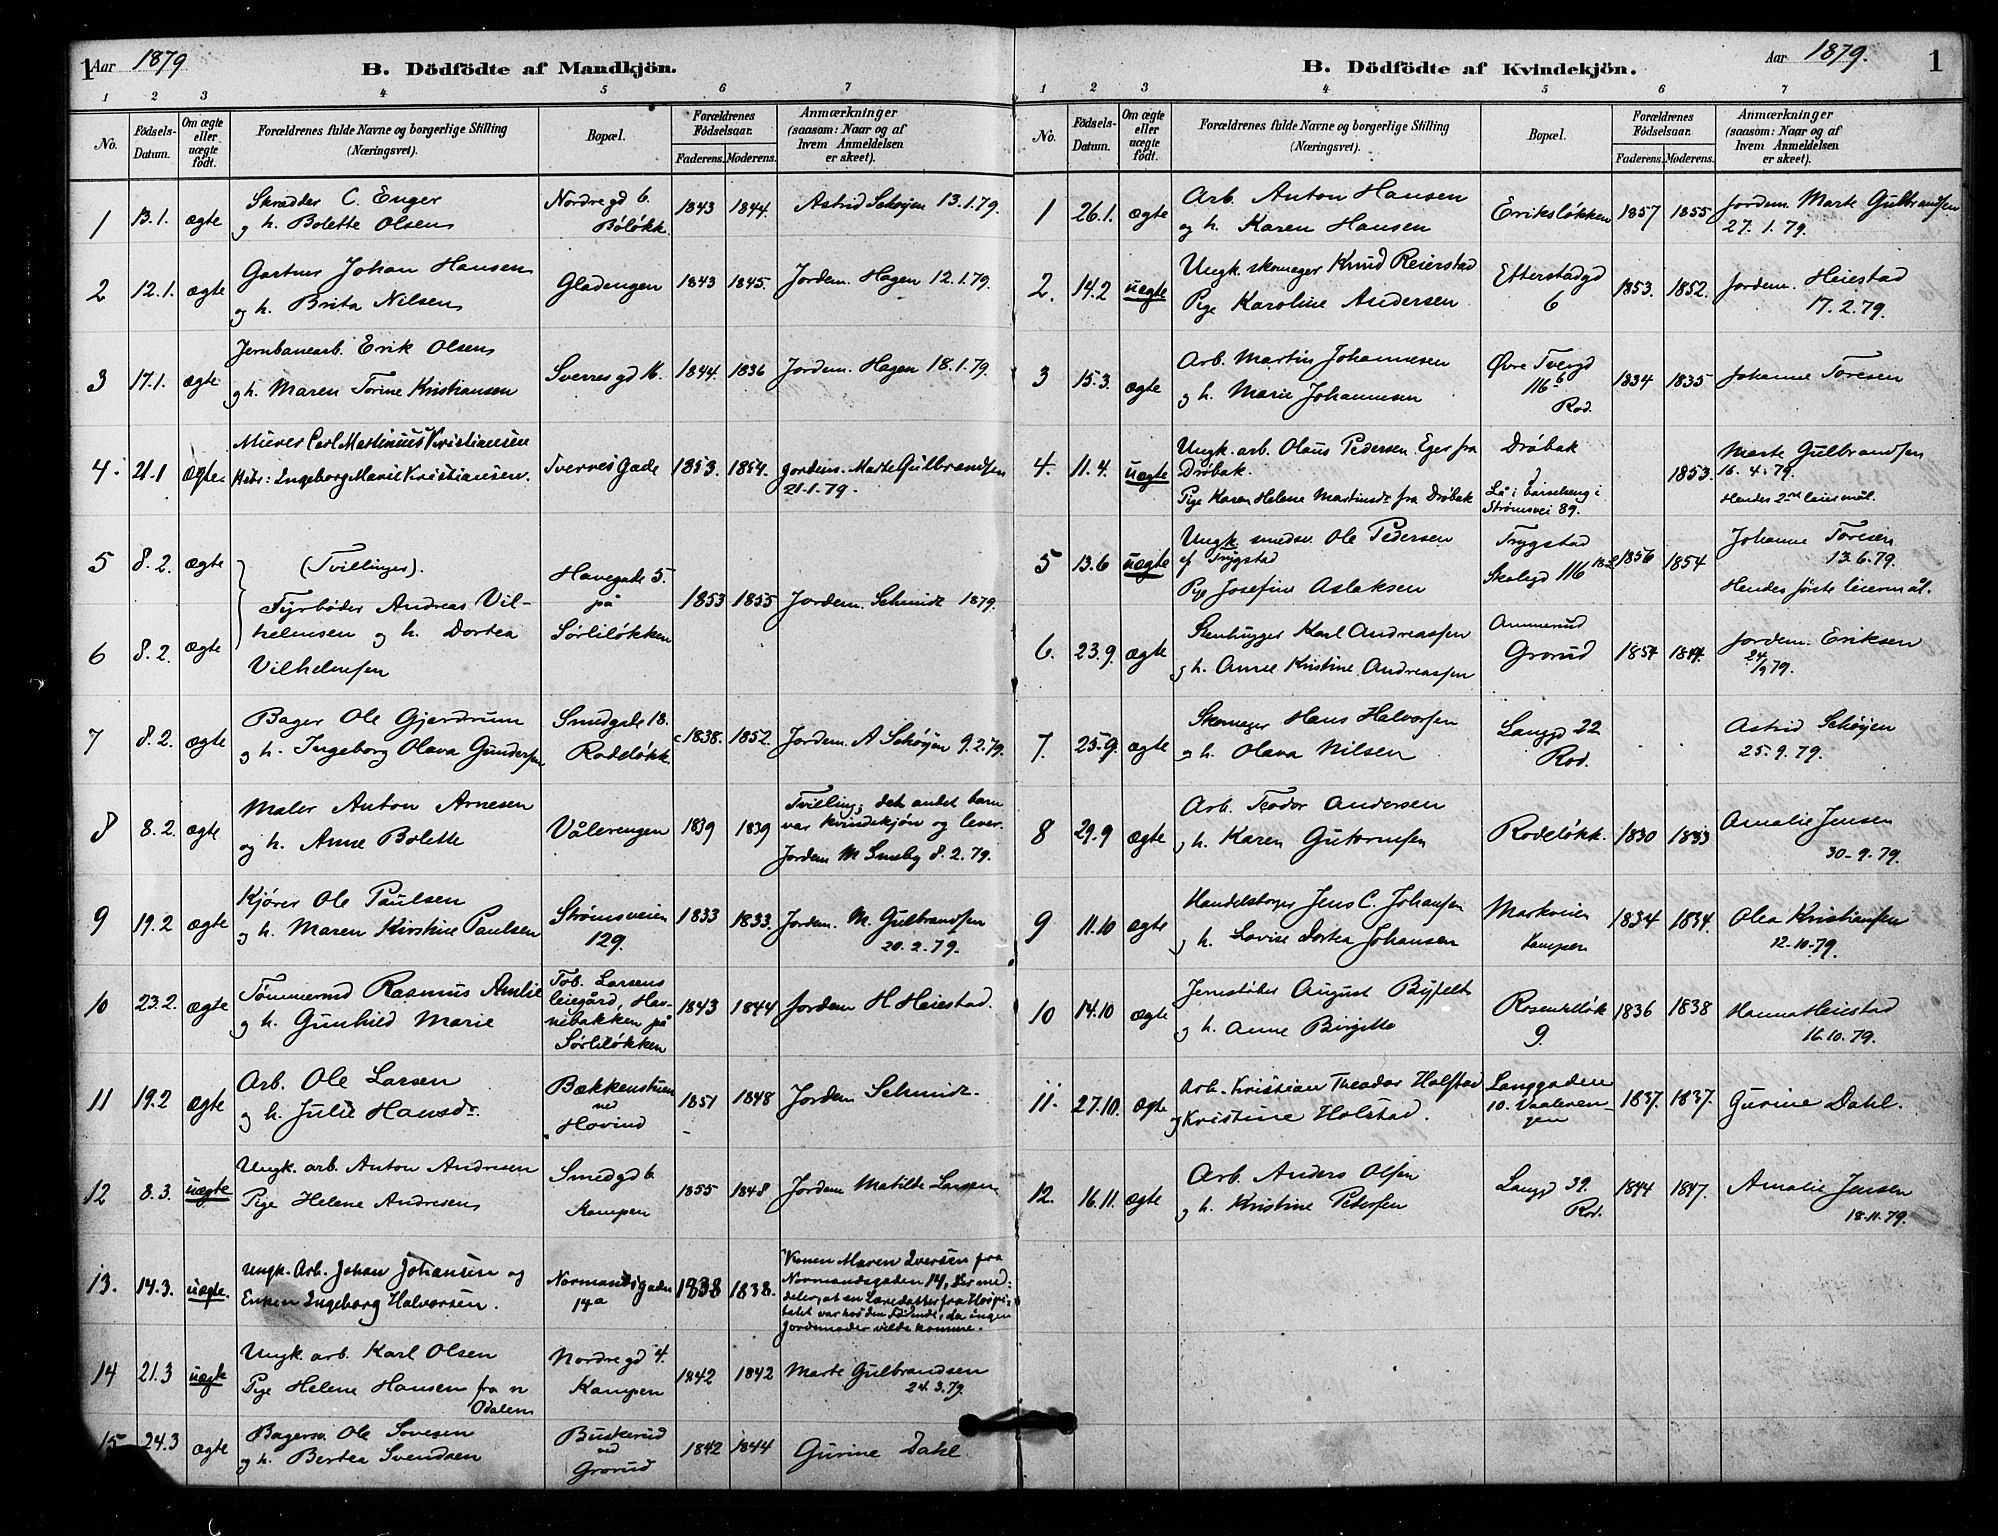 1 Aar 1879
B. Dödfödte af Mandkjön.
1 2 3 4 5 6 7
No.
Födsels-Datum.
Om ægte eller uægte födt.
Forældrenes fulde Navne og borgerlige Stilling (Næringsvei).
Bopæl.
Forældrenes Födselsaar.
Faderens. Moderens.
Anmærkninger (saasom: Naar og af hvem Anmeldelsen er skeet).
1 13.1. ægte Skrædder C. Enger og h. Bolette Olsen Nordre gd 6. Böløkk. 1843 1844. Astrid Schøyen 13.1.79.
2 12.1. ægte Gartner Johan Hansen og h. Brita Nilsen Gladengen 1843 1845. Jordem. Hagen 12.1.79.
3 17.1. ægte Jernbanearb. Erik Olsen og h. Maren Torine Kristiansen Sverres gd 16. 1844. 1836 Jordem. Hagen 18.1.79.
4. 21.1 Ægte. Murer Carl Martinius Kristiansen Hstr: Ingeborg Marie Kristiansen. Tverres Gade 1853. 1854. Jordem. Marte Gulbrandsen 21.1.79.
5 8.2. ægte (Tvillinger).
6 8.2. ægte Fyrbøder Andreas Vilhelmsen og h. Dortea Vilhelmsen Havegade 5. på Sørliløkken 1853 1855 Jordem. Schmidt 1879.
7 8.2. ægte Bager Ole Gjerdrum og h. Ingeborg Olava Gundersen Smedgade 18. Rodeløkk. 1838. 1852. Jordem. A Schøyen 9.2.79.
8 8.2. ægte Maler Anton Arnesen og h. Anne Bolette Vålerengen 1839 1839 Tvilling; det andet barn var kvindekjøn og lever. Jordem M Smeby 8.2.79.
9 19.2 ægte Kjører Ole Paulsen og h. Maren Kirstine Paulsen Strømsveien 129. 1833 1833. Jordem. M. Gulbrandsen 20.2.79.
10 23.2. ægte Tømmermd Rasmus Amlie og h. Gunhild Marie Tob. Larsens leiegård, Havnebakken på Sørliløkken 1843 1844 Jordem H. Heiestad.
11 19.2 ægte Arb. Ole Larsen og h. Julie Hansdr. Bækkenstuen ved Hovind 1851 1848 Jordem Schmidt.
12 8.3. uægte Ungk. arb. Anton Andresen Pige Helene Andresen Smedgd 6 Kampen 1855 1848 Jordem Matilde Larsen
13. 14.3. uægte. Ungk. Arb. Johan Johansen og Enken Ingeborg Halvorsen. Normandsgaden 14a 1838 1838. Konen Maren Iversen fra Normandsgaden 14, der meddeler, at en Læredatter fra Hospitalet var hos den Fødende, da ingen Jordemoder vilde komme.
14 21.3 uægte Ungk. arb. Karl Olsen Pige Helene Hansen fra n Odalen Nordre gd 4. Kampen 1842 1842 Marte Gulbrandsen 24.3.79.
15 24.3 ægte Bagersv. Ole Sovesen og h. Bertea Svendsen Buskerud ved Grorud 1842 1844 Gurine Dahl.
Aar 1879. 1
B. Dödfödte af Kvindekjön.
1 2 3 4 5 6 7
No.
Födsels-Datum.
Om ægte eller uægte födt.
Forældrenes fulde Navne og borgerlige Stilling (Næringsvei).
Bopæl.
Forældrenes Födselsaar.
Faderens. Moderens.
Anmærkninger (saasom: Naar og af hvem Anmeldelsen er skeet).
1 26.1. ægte Arb. Anton Hansen og h. Karen Hansen Eriksløkken 1857 1855 Jordem. Marte Gulbrandsen 27.1.79.
2. 14.2 uægte Ungk. skomager Knud Reierstad Pige Karoline Andersen Etterstadgd 6 1853. 1852. Jordem. Heiestad 17.2.79.
3 15.3. ægte Arb. Martin Johannesen og h. Marie Johannesen Øvre Tvergd 116 b Rod. 1834 1835 Johanne Toresen
4. 11.4. uægte Ungk. arb. Olaus Pedersen Eger fra Drøbak. Pige Karen Helene Martinsdr fra Drøbak Drøbak Lå i barselseng i Strømsvei 89. 1853. Marte Gulbrandsen 16.4.79. Hendes 2nd leiermål.
5 13.6 uægte Ungk. smedsv. Ole Pedersen af Trygstad Pige Josefine Aslaksen Trygstad Skolegd 116 1856 1854 Johanne Toresen 13.6.79. Hendes første leiermål.
6. 23.9. ægte Stenhugger Karl Andreassen og h. Anne Kristine Andreassen Ammerud Grorud 1854 1844. Jordem. Eriksen 24/9 79.
7. 25.9. ægte Skomager Hans Halvorsen og h. Olava Nilsen Langgd 22 Rod. . . Astrid Schøyen 25.9.79.
8 29.9 ægte Arb. Teodor Andersen og h. Karen Gutormsen Rodeløkk. 1830 1833 Amalie Jensen 30-9.79.
9 11.10 ægte Handelsborger Jens C. Johansen og h. Lovise Dortea Johansen Markveien Kampen 1834 1834. Olea Kristiansen 12.10.79.
10 14.10 ægte Jernstøber August Byfeldt og h. Anne Birgitte Rosenkløkk 9. 1836 1838 Hanna Heiestad 16.10.79.
11. 27.10. ægte Arb. Kristian Theodor Holstad og Kristine Holstad. Langgaden 10. Vaalerengen 1837. 1837. Gurine Dahl.
12. 16.11. ægte Arb. Anders Olsen og h. Kristine Petersen Langgd 39. Rod. 1844 1847. Amalie Jensen 18.11.79.